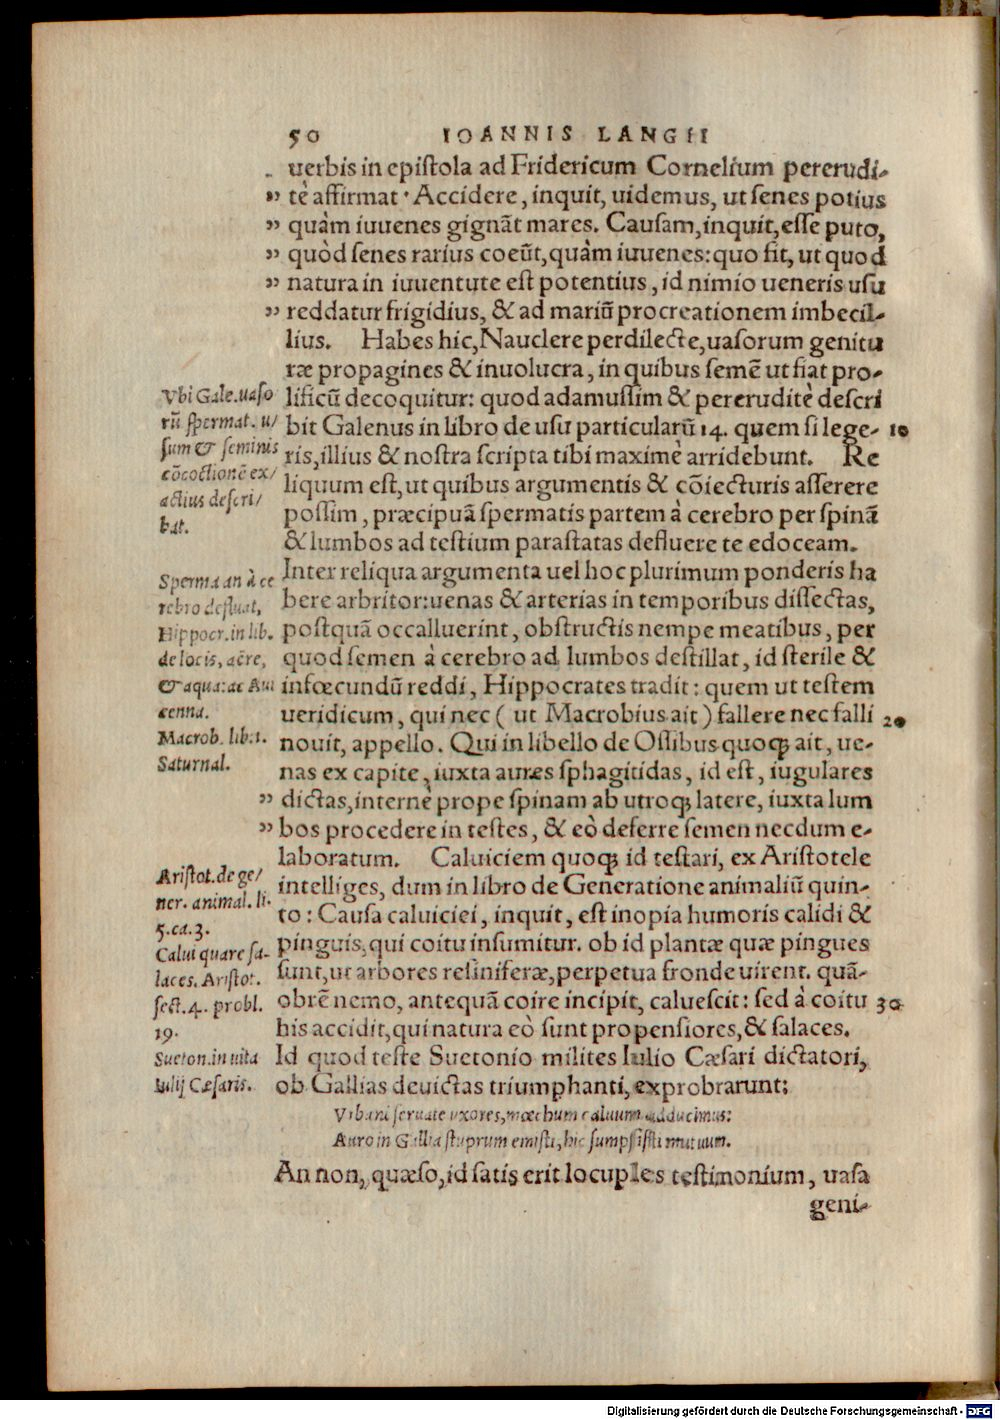 50 IOANNIS LANGII
uerbis in epistola ad Fridericum Cornelium pererudi-
„ tè affirmat. Accidere, inquit, uidemus, ut senes potius
„ quàm iuuenes gignāt mares. Causam, inquit, esse puto,
„ quòd senes rarius coeūt, quàm iuuenes: quo fit, ut quod
„ natura in iuuentute est potentius, id nimio ueneris usu
„ reddatur frigidius, & ad mariū procreationem imbecil-
lius. Habes hic, Nauclere perdilecte, uasorum genitu
ræ propagines & inuolucra, in quibus semē ut fiat pro-
lificū decoquitur: quod adamussim & pererudite descri
bit Galenus in libro de usu particularū 14. quem si lege- 10
ris, illius & nostra scripta tibi maximè arridebunt. Re
liquum est, ut quibus argumentis & cōiecturis asserere
possim, præcipuā spermatis partem à cerebro per spinā
& lumbos ad testium parastatas defluere te edoceam.
Inter reliqua argumenta uel hoc plurimum ponderis ha
bere arbritor: uenas & arterias in temporibus dissectas,
postquā occalluerint, obstructis nempe meatibus, per
quod semen à cerebro ad lumbos destillat, id sterile &
infœcundū reddi, Hippocrates tradit: quem ut testem
ueridicum, qui nec ( ut Macrobius ait ) fallere nec falli 20
nouit, appello. Qui in libello de Ossibus quoqꝫ ait, ue-
nas ex capite, iuxta aures sphagitidas, id est, iugulares
„ dictas, internè prope spinam ab utroqꝫ latere, iuxta lum
„ bos procedere in testes, & eò deferre semen necdum e-
laboratum. Caluiciem quoqꝫ id testari, ex Aristotele
intelliges, dum in libro de Generatione animaliū quin-
to: Causa caluiciei, inquit, est inopia humoris calidi &
pinguis, qui coitu insumitur. ob id plantæ quæ pingues
sunt, ut arbores resiniferæ, perpetua fronde uirent. quā-
obrē nemo, antequā coire incipit, caluescit: sed à coitu 30
his accidit, qui natura eò sunt propensiores, & salaces.
Id quod teste Suetonio milites Iulio Cæsari dictatori,
ob Gallias deuictas triumphanti, exprobrarunt:
Vrbani seruate uxores, mœchum caluum adducimus:
Auro in Gallia stuprum emisti, hic sumpsisti mutuum.
An non, quæso, id satis erit locuples testimonium, uasa
geni-
Vbi Gale. uaso
rū spermat. u/
sum & seminis
cōcoctionē ex/
actius descri/
bat.
Sperma an à ce
rebro defluat,
Hippocr. in lib.
de locis, aëre,
& aqua: ac Aui
cenna.
Macrob. lib. 1.
Saturnal.
Aristot. de ge/
ner. animal. li.
5. ca. 3.
Calui quare sa-
laces. Aristot.
sect. 4. probl.
19.
Sueton. in uita
Iulij Cæsaris.
Digitalisierung gefördert durch die Deutsche Forschungsgemeinschaft - DFG